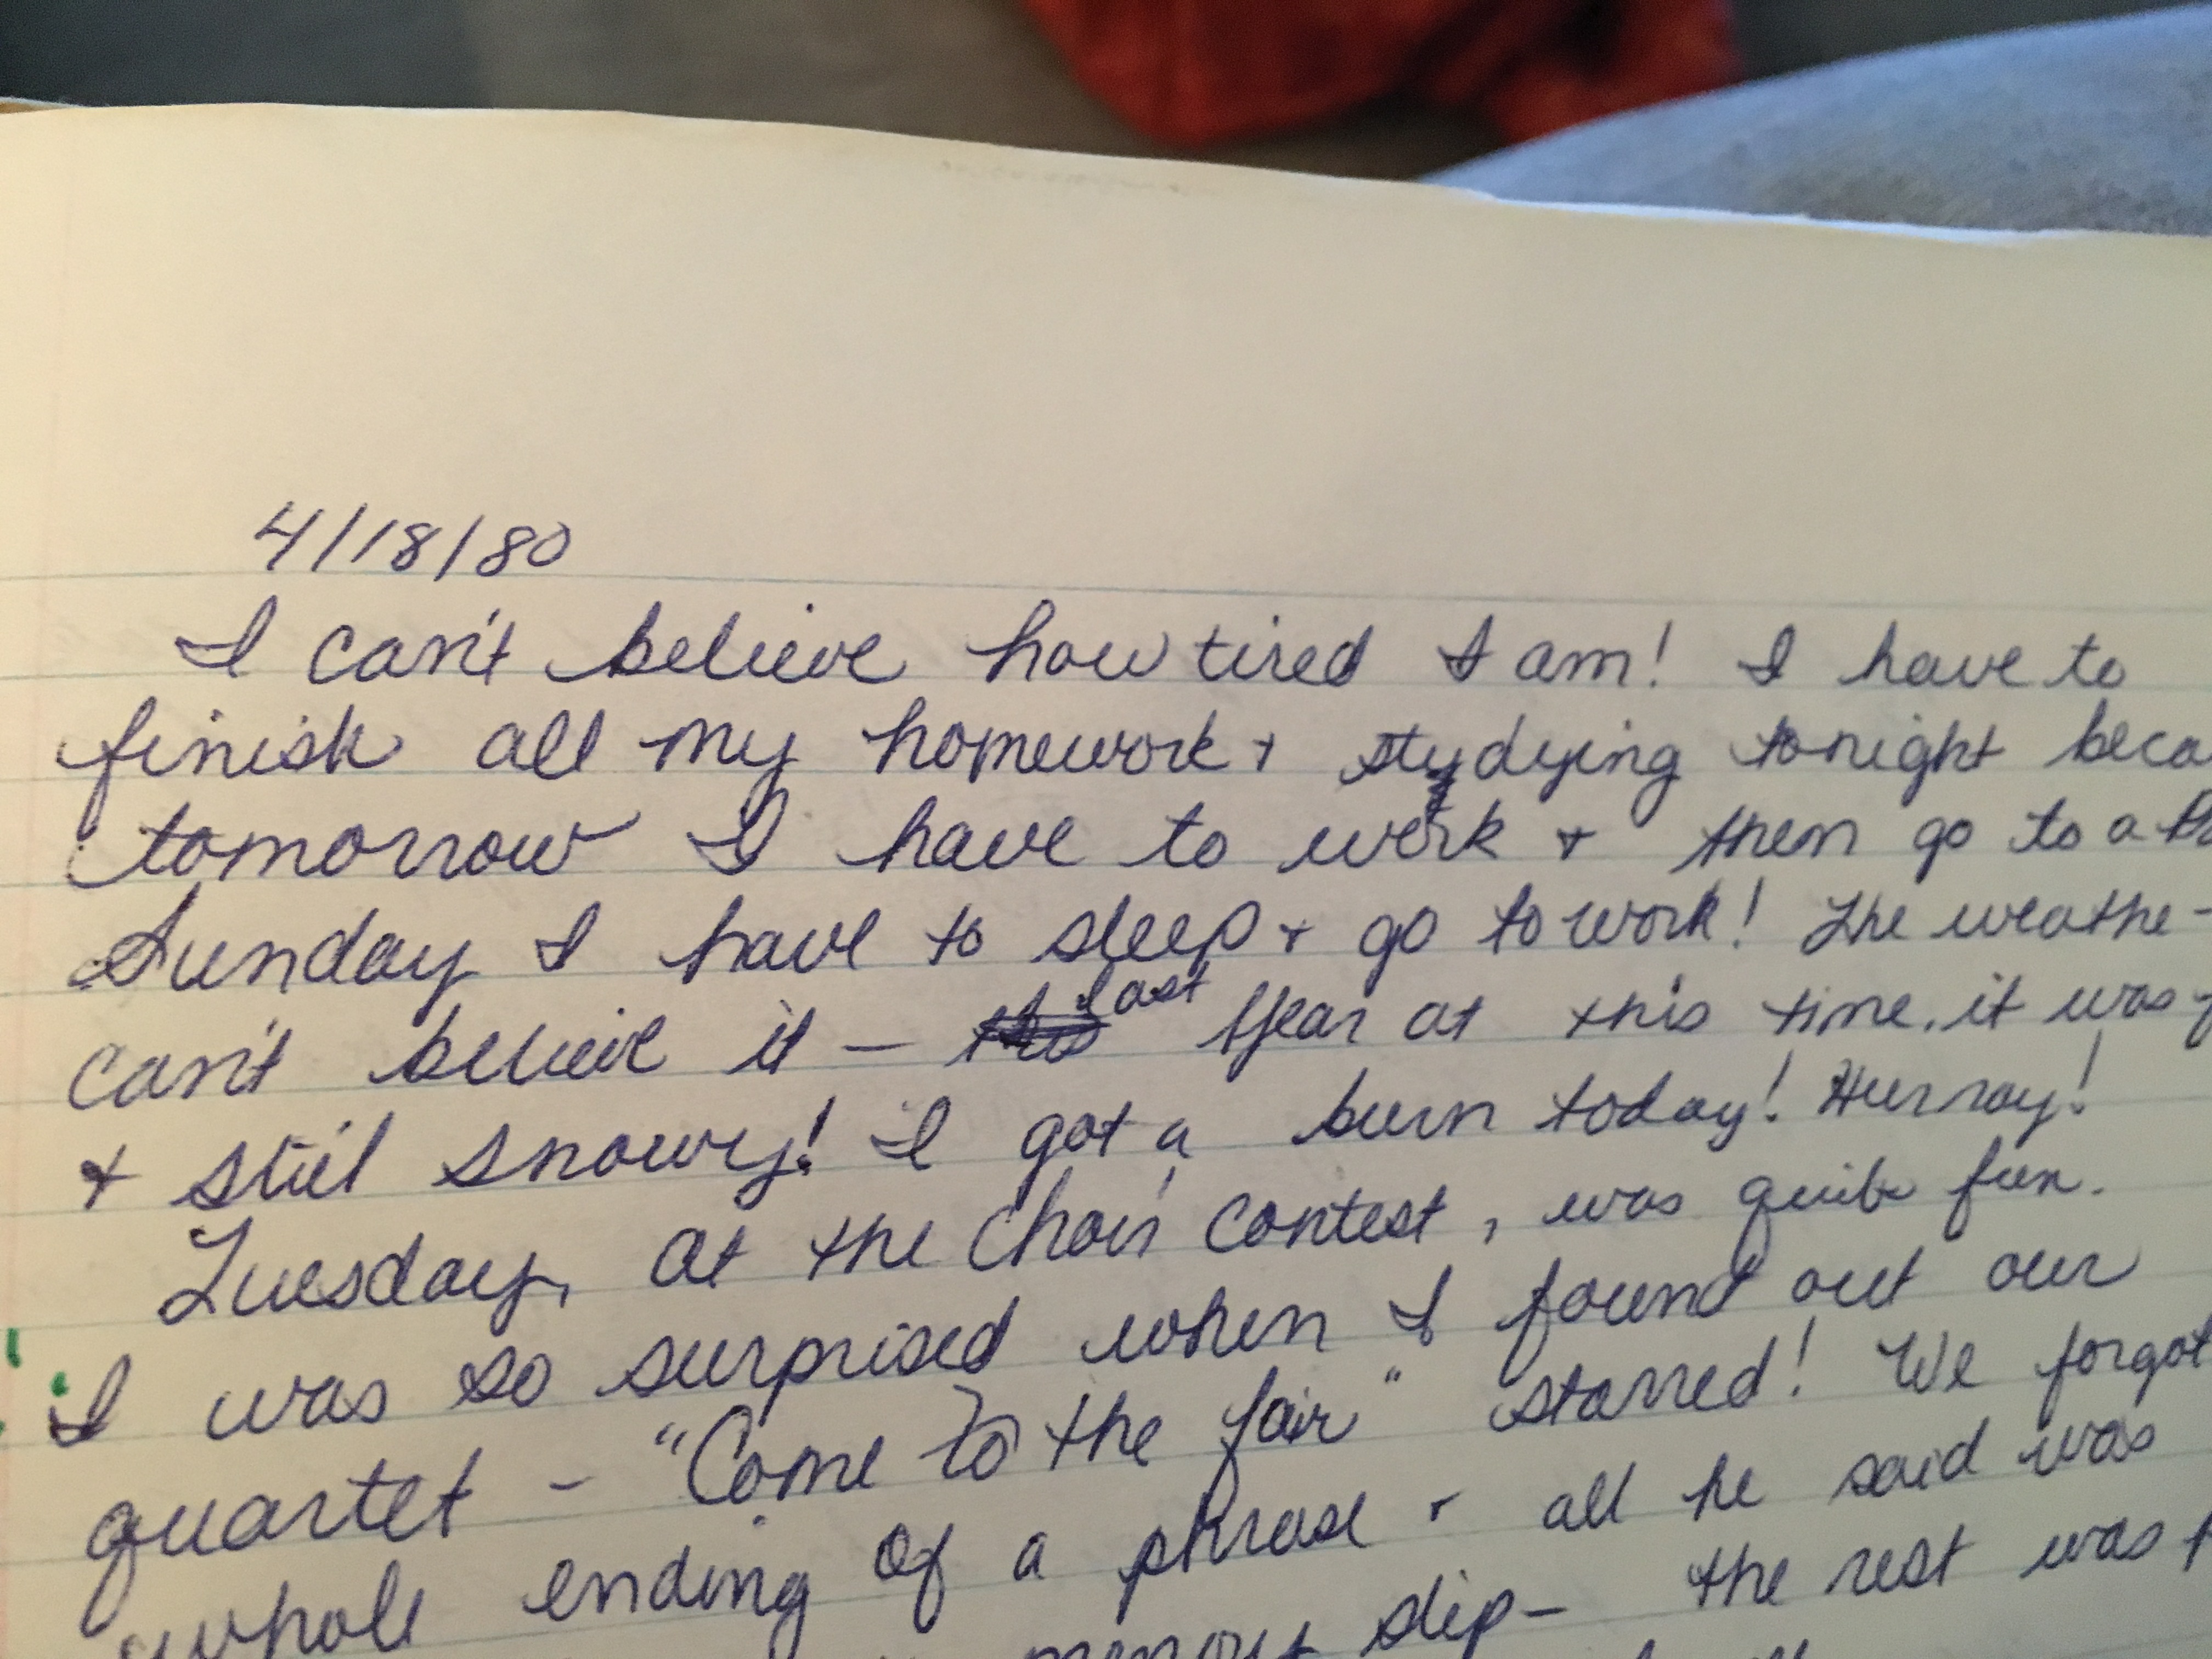 4/18/80
I can't believe how tired I am! I have to
finish all my homework + studying tonight beca
tomorrow I have to work + then go to a
Sunday I have to sleep + go to work! The weathe-
can't believe it — last year at this time, it was
+ still snowy! I got a burn today! Hurray!
Tuesday, at the choir contest, was quite fun.
I was so surprised when I found out our
quartet - "Come to the fair" starred! We forgot
whole ending of a phrase + all he said was
memory slip - the rest was